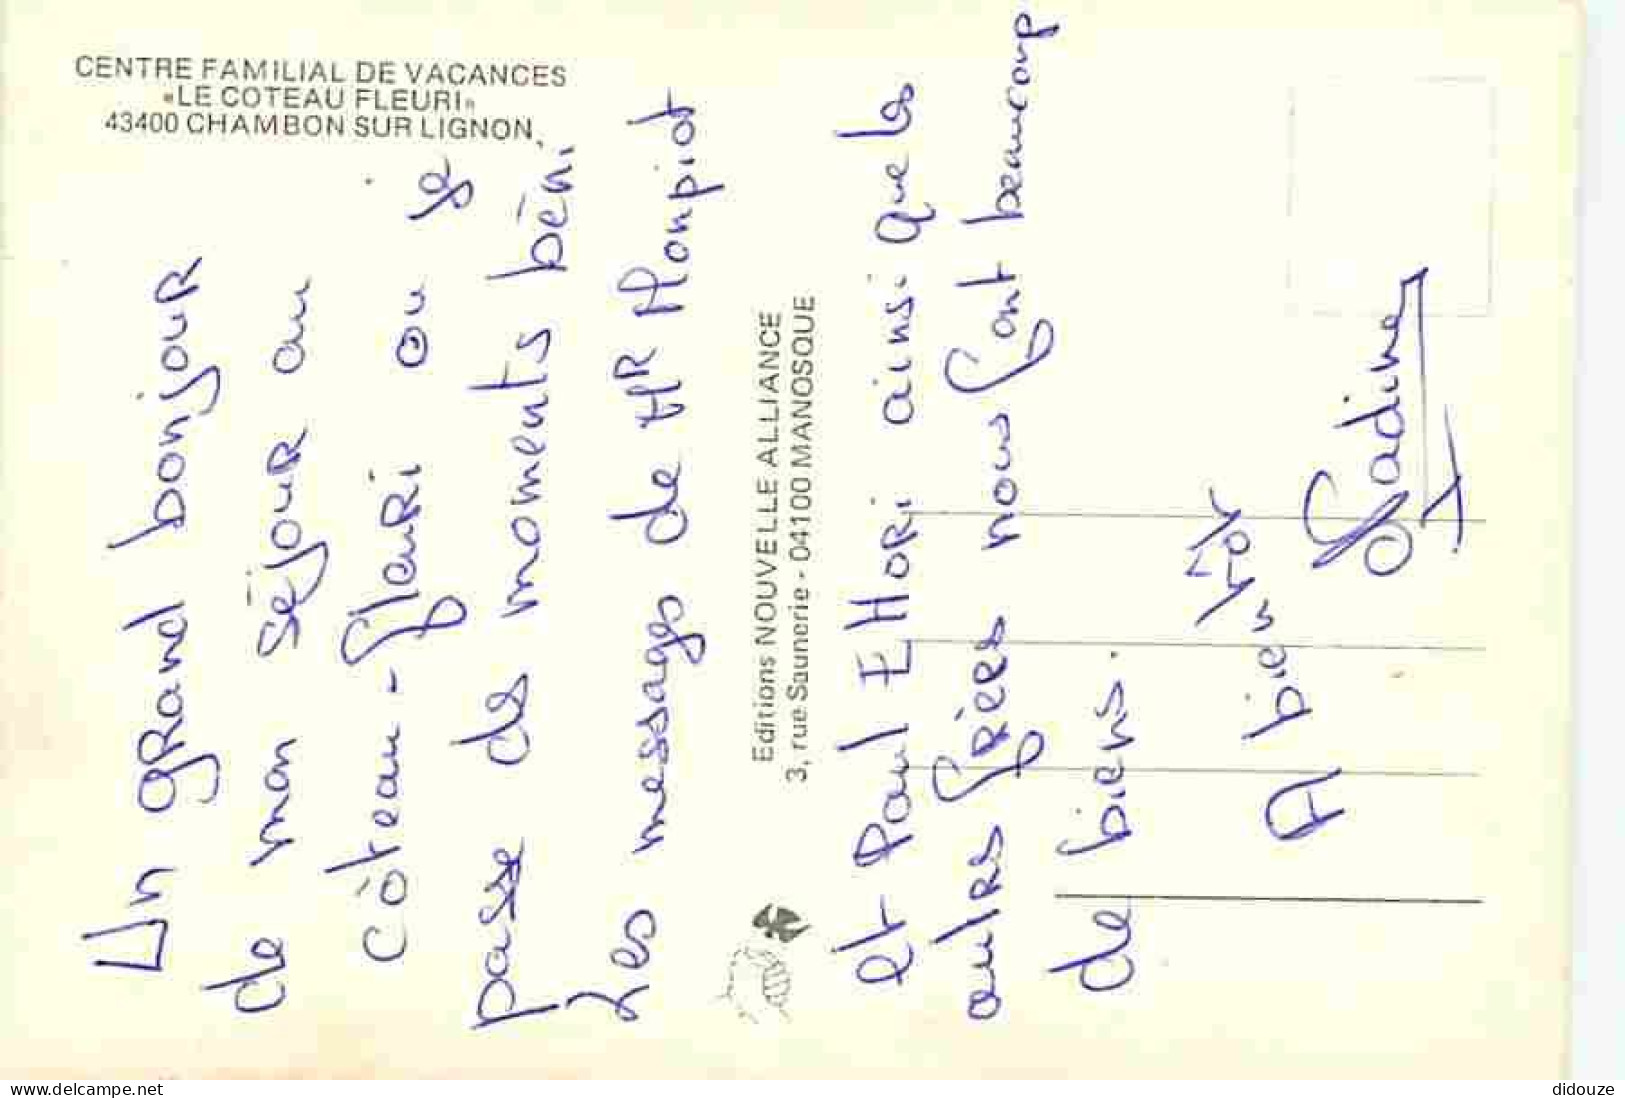 CENTRE FAMILIAL DE VACANCES
«LE COTEAU FLEURI»
43400 CHAMBON SUR LIGNON
Un grand bonjour
de mon séjour au
côteau-fleuri ou je
passe des moments béni
Les messages de MR Monpiot
Editions NOUVELLE ALLIANCE
3, rue Saunerie - 04100 MANOSQUE
et Paul EHORi ainsi que les
autres frères nous font beaucoup
de biens.
A bien
Sadine
www.delcampe.net
didouze